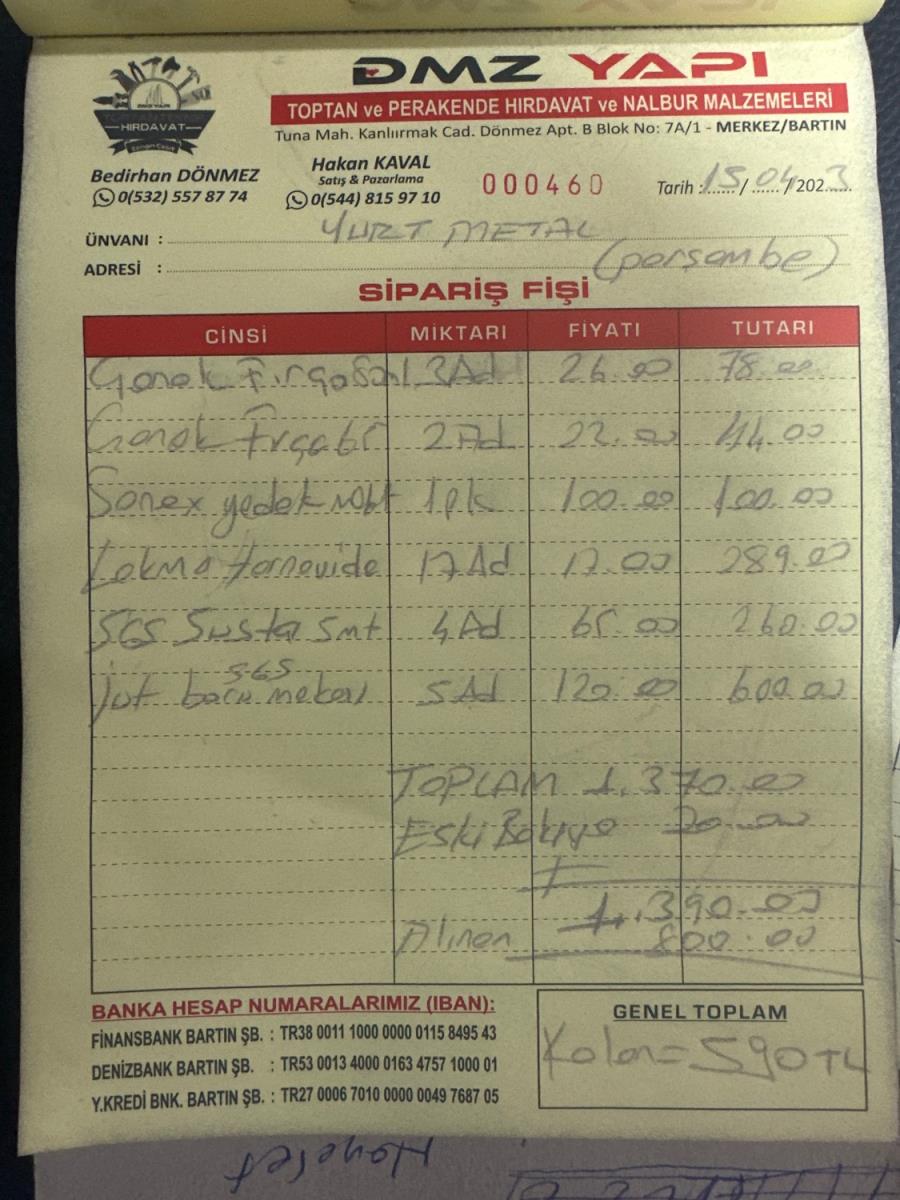 DMZ YAPI
TOPTAN ve PERAKENDE HIRDAVAT ve NALBUR MALZEMELERİ
HIRDAVAT
Tuna Mah. Kanlıırmak Cad. Dönmez Apt. B Blok No: 7A/1 - MERKEZ/BARTIN
Bedirhan DÖNMEZ
0(532) 557 87 74
Hakan KAVAL
Satış & Pazarlama
0(544) 815 97 10
000460
Tarih : 15 / 04 / 2023
ÜNVANI : YURT METAL
ADRESİ : (perşembe)
SİPARİŞ FİŞİ
CİNSİ MİKTARI FİYATI TUTARI
3Ad 26.00 78.00
2Ad 22.00 44.00
Sonex yedek 1pk 100.00 100.00
Lokma tornavida 17Ad 17.00 289.00
SGS Susta 4Ad 65.00 260.00
SGS
5Ad 120.00 600.00
TOPLAM 1.370.00
Eski Bakiye 20.00
+
1.390.00
Alınan 800.00
BANKA HESAP NUMARALARIMIZ (IBAN):
FİNANSBANK BARTIN ŞB. : TR38 0011 1000 0000 0115 8495 43
DENİZBANK BARTIN ŞB. : TR53 0013 4000 0163 4757 1000 01
Y.KREDİ BNK. BARTIN ŞB. : TR27 0006 7010 0000 0049 7687 05
GENEL TOPLAM
Kalan = 590 TL